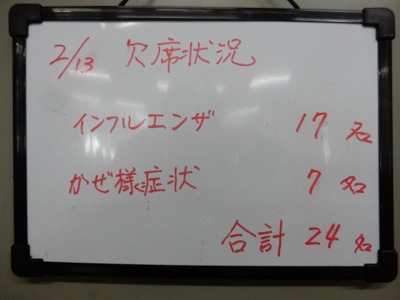 2/13 欠席状況
インフルエンザ 17名
かぜ様症状 7名
合計 24名